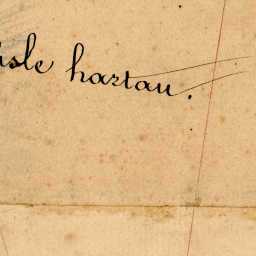 isle hartau.